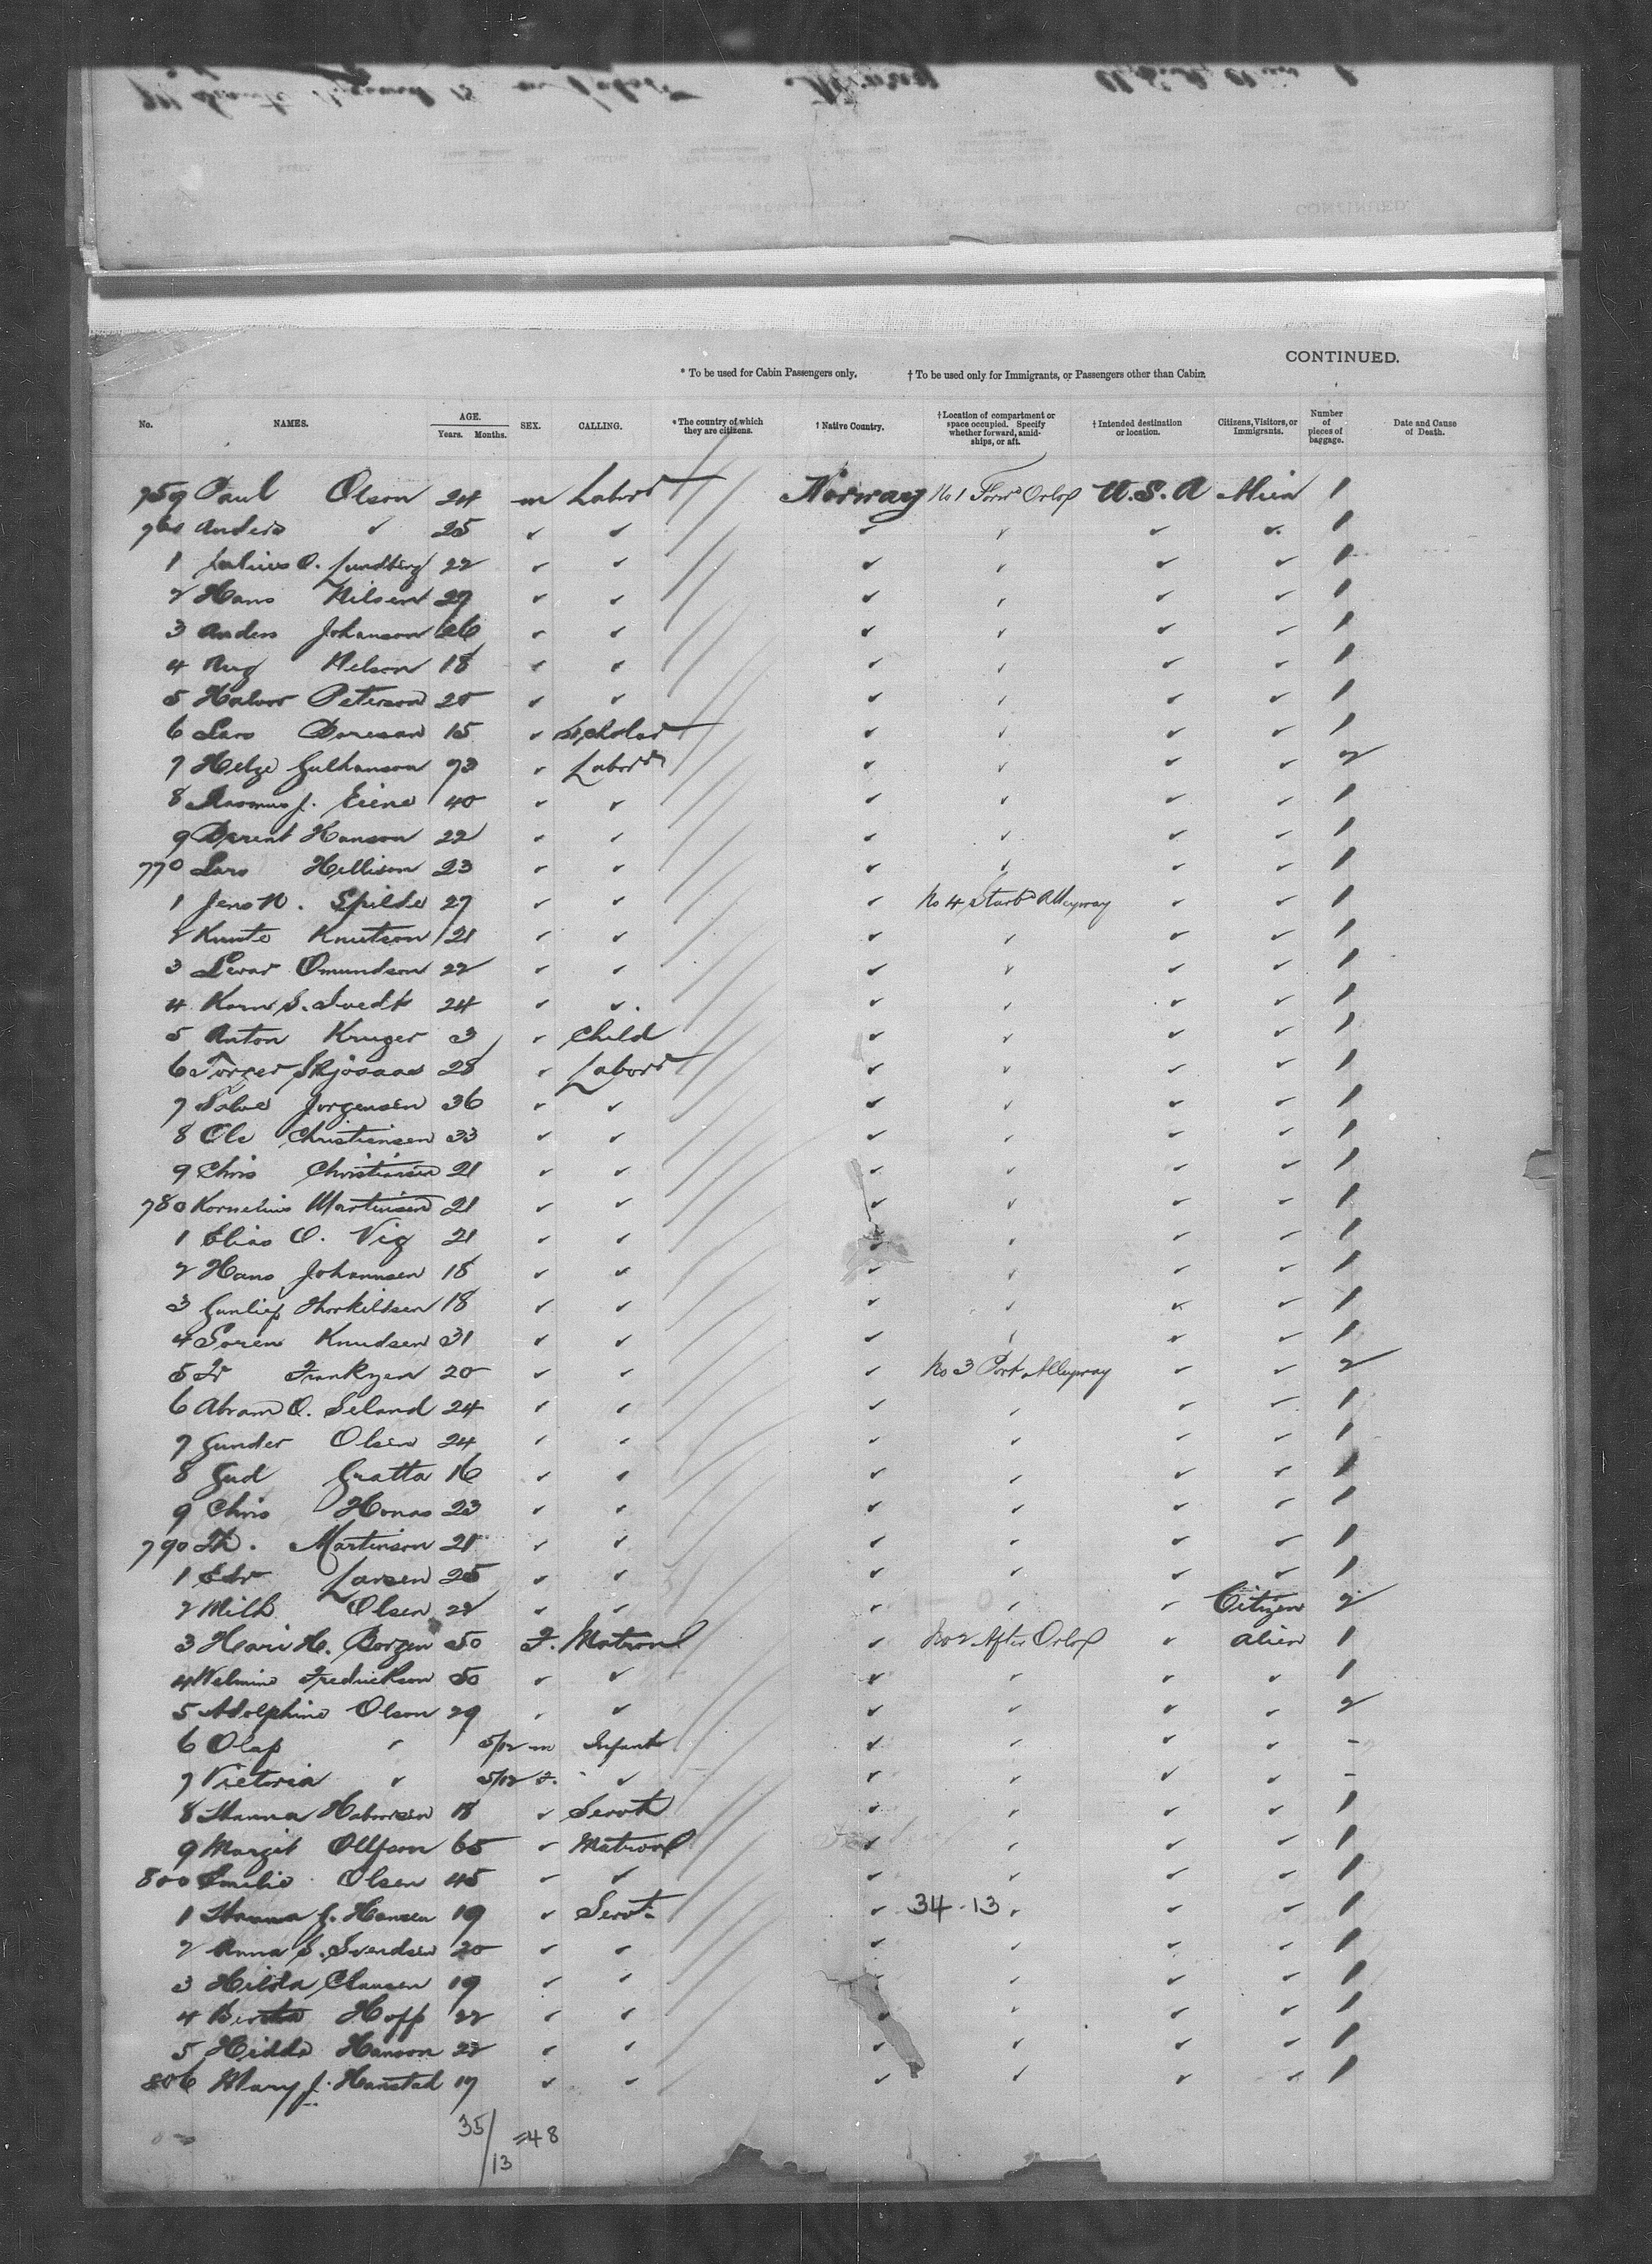 CONTINUED.
* To be used for Cabin Passengers only. † To be used only for Immigrants, or Passengers other than Cabin.
No. NAMES. AGE. Years. Months. SEX. CALLING. * The country of which they are citizens. † Native Country. † Location of compartment or space occupied. Specify whether forward, amidships, or aft. † Intended destination or location. Citizens, Visitors, or Immigrants. Number of pieces of baggage. Date and Cause of Death.
759 Paul Olson 24 m Labor Norway No 1 Forwd Orlop U.S.A Alien 1
760 Anders ✓ 25 ✓ ✓ ✓ ✓ ✓ ✓ 1
1 Julius O. Lundberg 22 ✓ ✓ ✓ ✓ ✓ ✓ 1
2 Hans Nilsen 27 ✓ ✓ ✓ ✓ ✓ ✓ 1
3 Anders Johanson 26 ✓ ✓ ✓ ✓ ✓ ✓ 1
4 Aug Nelson 18 ✓ ✓ ✓ ✓ ✓ ✓ 1
5 Halvor Peterson 20 ✓ ✓ ✓ ✓ ✓ ✓ 1
6 Lars 15 ✓ Scholar ✓ ✓ ✓ ✓ 1
7 Helge Gulhanson 73 ✓ Labor ✓ ✓ ✓ ✓ 2
8 Rasmus J. Eiene 40 ✓ ✓ ✓ ✓ ✓ ✓ 1
9 Berent Hanson 22 ✓ ✓ ✓ ✓ ✓ ✓ 1
770 Lars Hellison 23 ✓ ✓ ✓ ✓ ✓ ✓ 1
1 Jens N. Spilde 27 ✓ ✓ ✓ No 4 Starbd Alleyway ✓ ✓ 1
2 Knute Knutson 21 ✓ ✓ ✓ ✓ ✓ ✓ 1
3 Omundson 22 ✓ ✓ ✓ ✓ ✓ ✓ 1
4 S. Tvedt 24 ✓ ✓ ✓ ✓ ✓ ✓ 1
5 Anton Kruger 3 ✓ Child ✓ ✓ ✓ ✓ 1
6 28 ✓ Labor ✓ ✓ ✓ ✓ 1
7 Salve Jorgensen 36 ✓ ✓ ✓ ✓ ✓ ✓ 1
8 Ole Christiansen 33 ✓ ✓ ✓ ✓ ✓ ✓ 1
9 Chris Christiansen 21 ✓ ✓ ✓ ✓ ✓ ✓ 1
780 Kornelius Martinsen 21 ✓ ✓ ✓ ✓ ✓ ✓ 1
1 Elias O. Vig 21 ✓ ✓ ✓ ✓ ✓ ✓ 1
2 Hans Johannsen 18 ✓ ✓ ✓ ✓ ✓ ✓ 1
3 Gunlief Thorkildsen 18 ✓ ✓ ✓ ✓ ✓ ✓ 1
4 Soren Knudsen 31 ✓ ✓ ✓ ✓ ✓ ✓ 1
5 Frankzen 20 ✓ ✓ ✓ No 3 Port Alleyway ✓ ✓ 2
6 Abram O. Seland 24 ✓ ✓ ✓ ✓ ✓ ✓ 1
7 Gunder Olsen 24 ✓ ✓ ✓ ✓ ✓ ✓ 1
8 Gud Gratta 16 ✓ ✓ ✓ ✓ ✓ ✓ 1
9 Chris Honas 23 ✓ ✓ ✓ ✓ ✓ ✓ 1
790 Th. Martinson 21 ✓ ✓ ✓ ✓ ✓ ✓ 1
1 Edw Larsen 25 ✓ ✓ ✓ ✓ ✓ ✓ 1
2 Milh Olsen 22 ✓ ✓ ✓ ✓ ✓ Citizen 2
3 Hari H. Borgen 50 F. Matron ✓ No 2 After Orlop ✓ Alien 1
4 Velmine Fredrickson 50 ✓ ✓ ✓ ✓ ✓ ✓ 1
5 Adolphine Olson 29 ✓ ✓ ✓ ✓ ✓ ✓ 2
6 Olaf ✓ 5/12 m Infant ✓ ✓ ✓ ✓ -
7 Victoria ✓ 5/12 F. ✓ ✓ ✓ ✓ ✓ -
8 Hanna Haborsen 18 ✓ Servt ✓ ✓ ✓ ✓ 1
9 Margit Ollfson 65 ✓ Matron ✓ ✓ ✓ ✓ 1
800 Emilie Olsen 45 ✓ ✓ ✓ ✓ ✓ ✓ 1
1 Hanna J. Hansen 19 ✓ Servt ✓ 34-13 ✓ ✓ ✓ 1
2 Anna S. Svendsen 20 ✓ ✓ ✓ ✓ ✓ ✓ 1
3 Hilda Clausen 19 ✓ ✓ ✓ ✓ ✓ ✓ 1
4 Berta Hoff 22 ✓ ✓ ✓ ✓ ✓ ✓ 1
5 Hilda Hanson 22 ✓ ✓ ✓ ✓ ✓ ✓ 1
806 Mary J. Hanstad 17 ✓ ✓ ✓ ✓ ✓ ✓ 1
35/13 =48